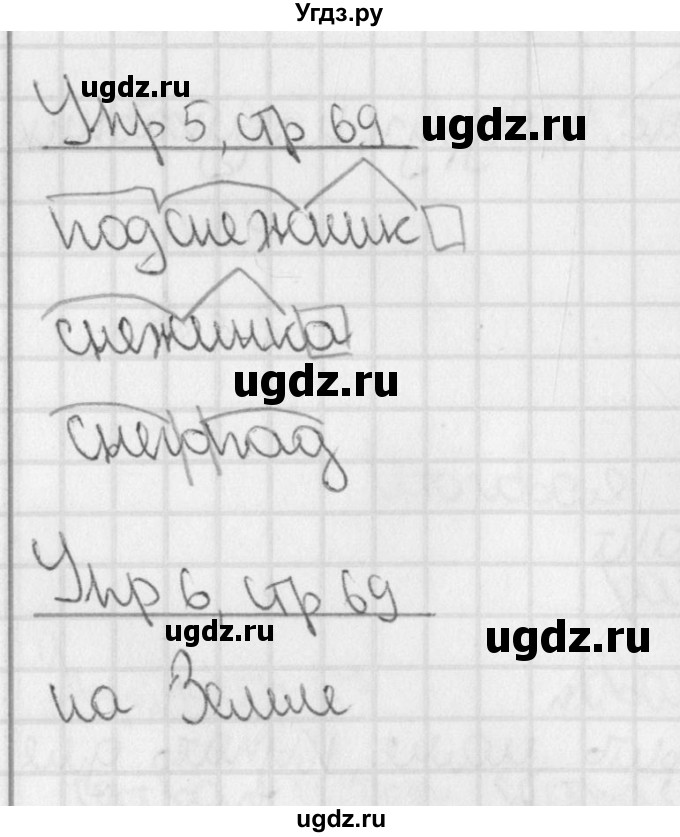 Угдз.ру
ugdz.ru
Упр 5, стр 69
ugdz.ru
подснежник
снежинка
ugdz.ru
снегопад
Упр 6, стр 69
ugdz.ru
ugdz.ru
на Земле
ugdz.ru